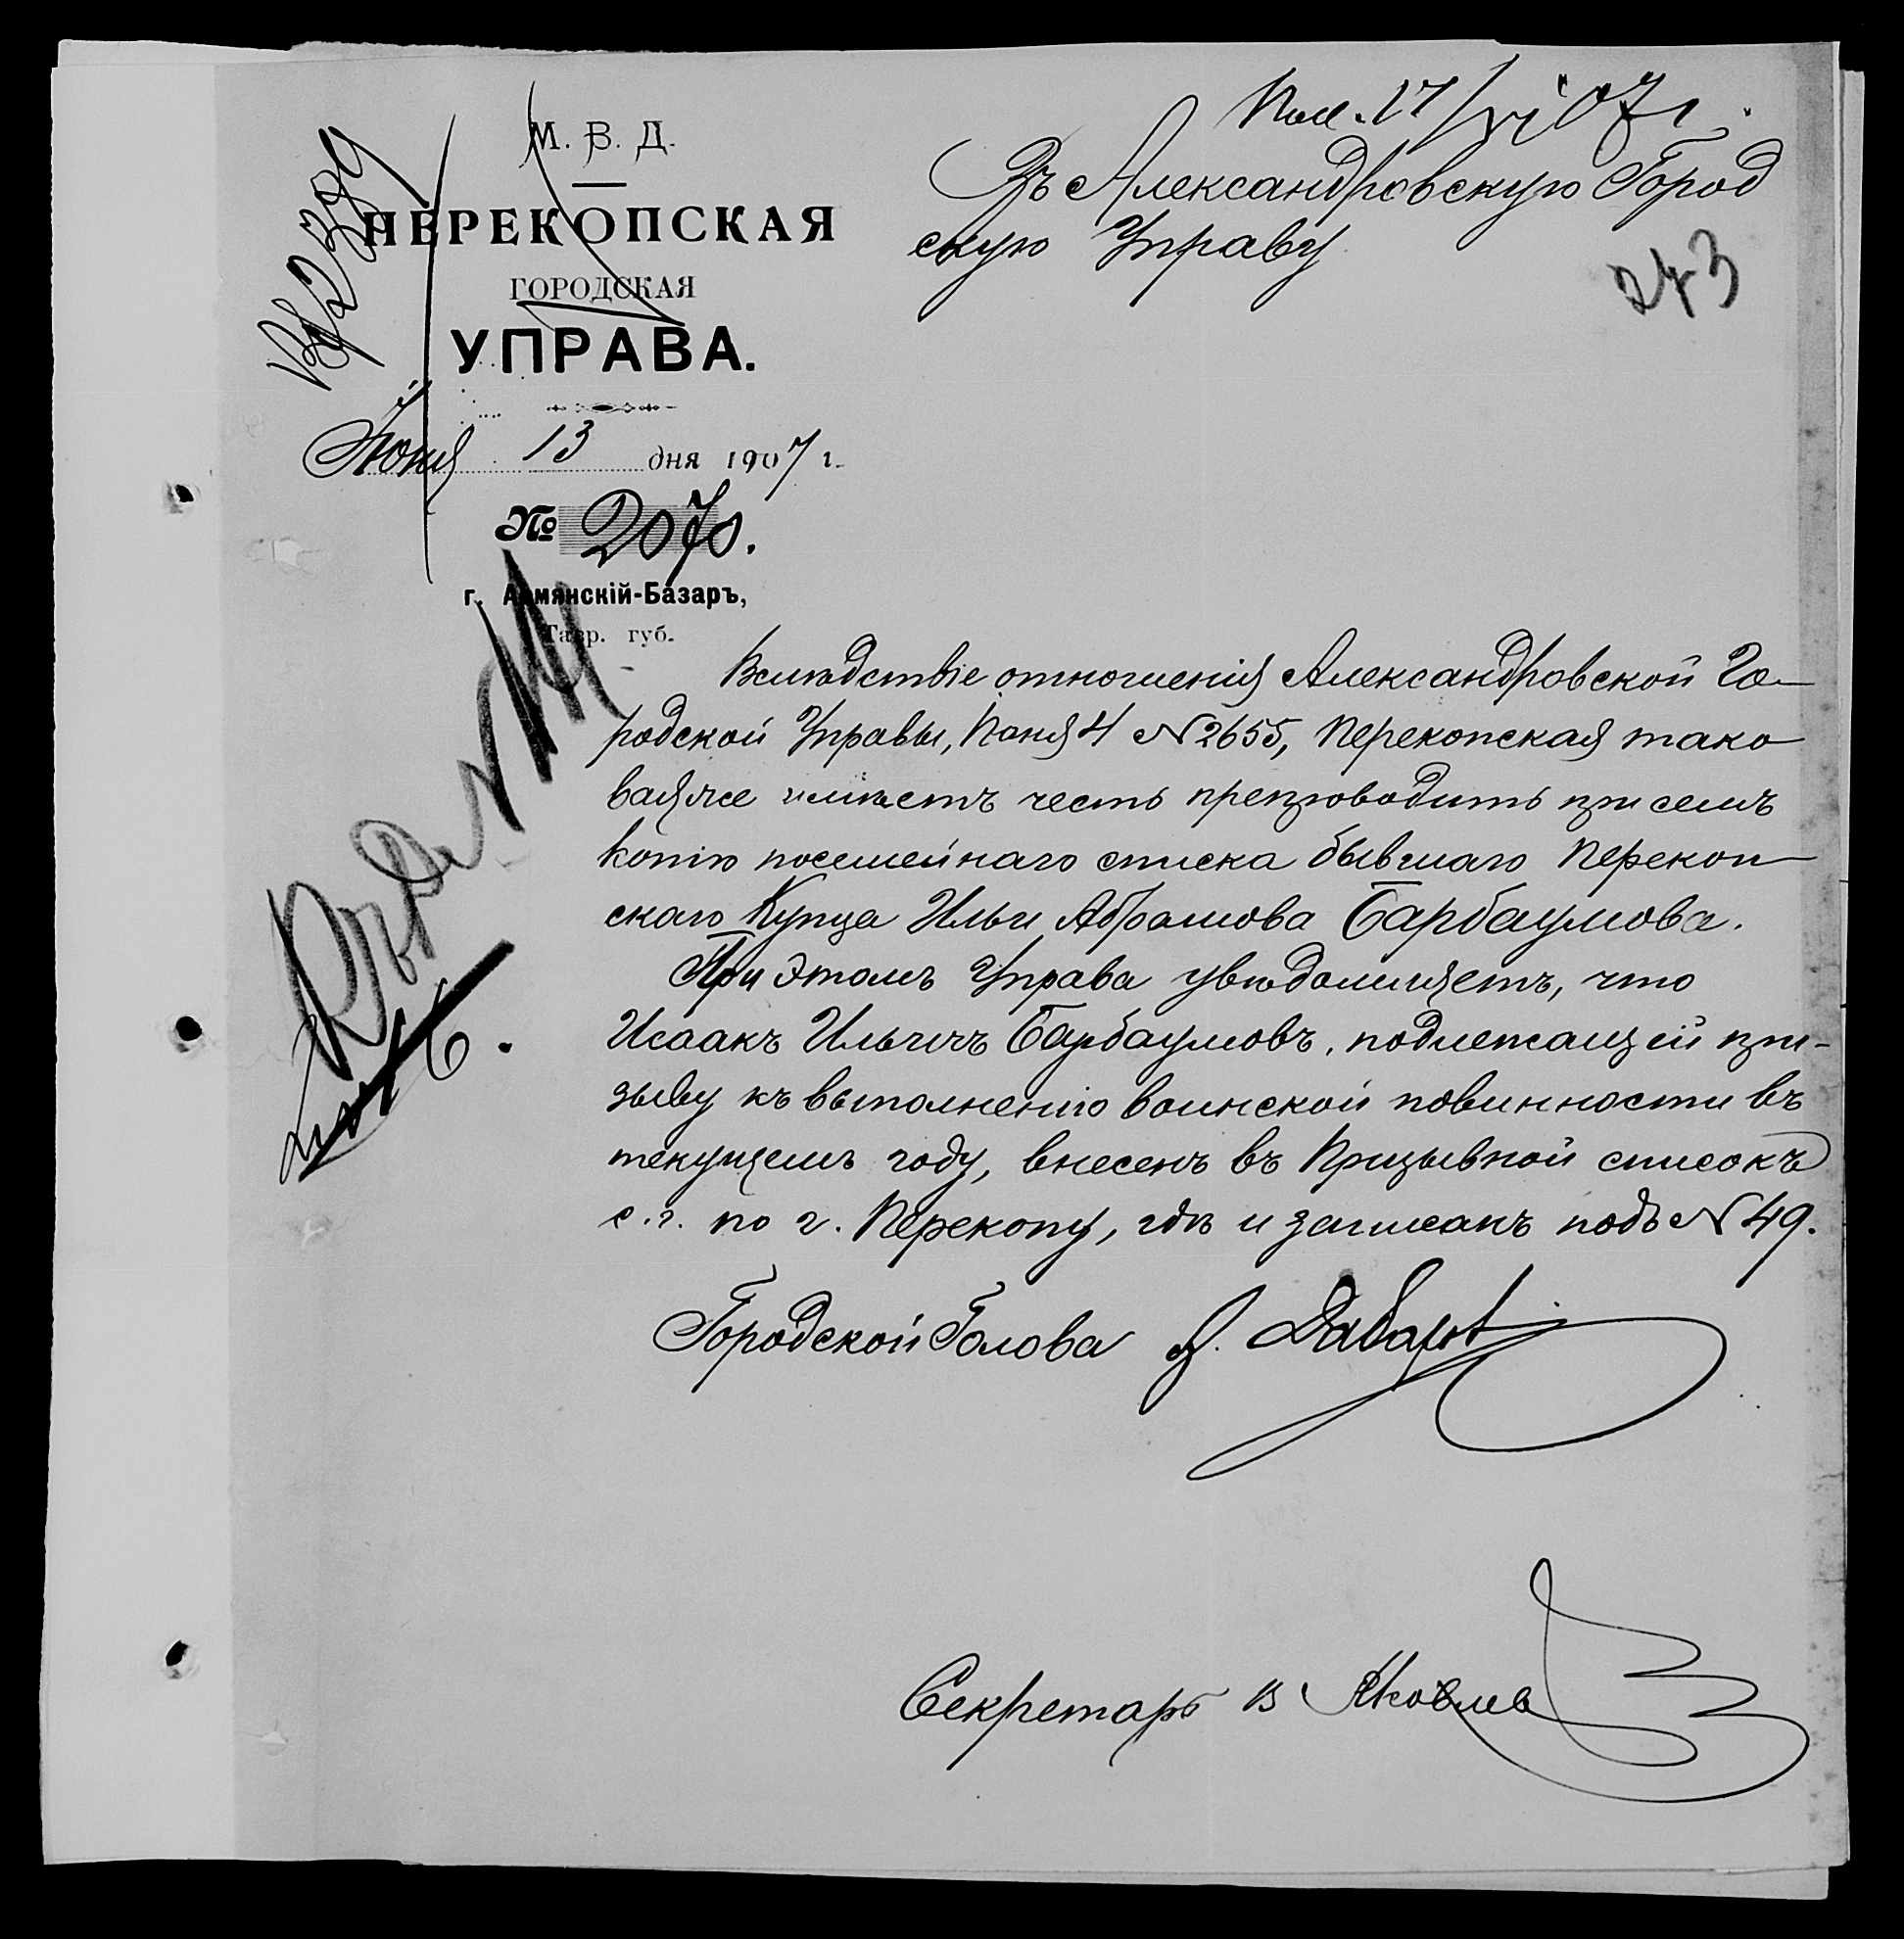 Пол. 17/VI 07 г.
Въ Александровскую Город
скую Управу
243
М. В. Д.
ПЕРЕКОПСКАЯ
ГОРОДСКАЯ
УПРАВА.
Іюня 13 дня 1907 г.
№ 2070.
г. Армянскій-Базаръ,
Тавр. губ.
Вслѣдствіе отношенія Александровской Го-
родской Управы, Іюня 4 № 2655, Перекопская тако
ваяже имѣетъ честь препроводить при семъ
копію посемейнаго списка бывшаго Перекоп
скаго Купца Ильи Абрамова Барбаумова.
При этомъ Управа увѣдомляетъ, что
Исаакъ Ильичъ Барбаумовъ, подлежащій при-
зыву къ выполненію воинской повинности въ
текущемъ году, внесенъ въ Призывной списокъ
с.г. по г. Перекопу, гдѣ и записанъ подъ № 49.
Городской Голова
Секретарь В Яковлев